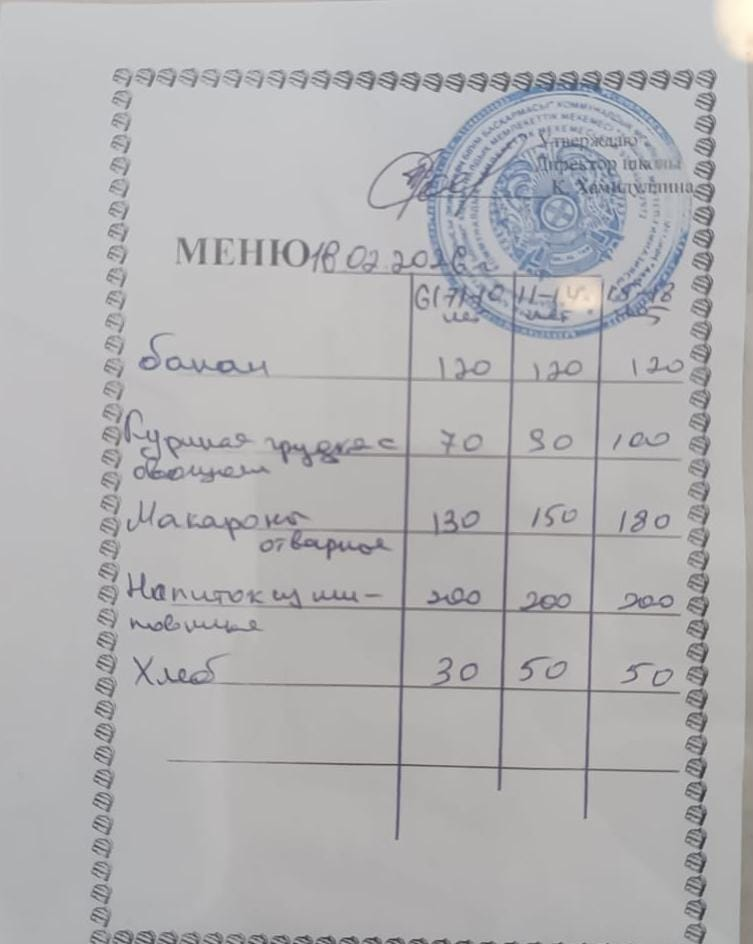 Утверждаю
Директор школы
К. Хамидуллина
МЕНЮ 18.02.2026 г
6(7)-10 11-14 15-18
лет лет
банан 120 120 120
Куриная грудка с 70 90 100
овощами
Макароны 130 150 180
отварные
Напиток из ши- 200 200 200
повника
Хлеб 30 50 50